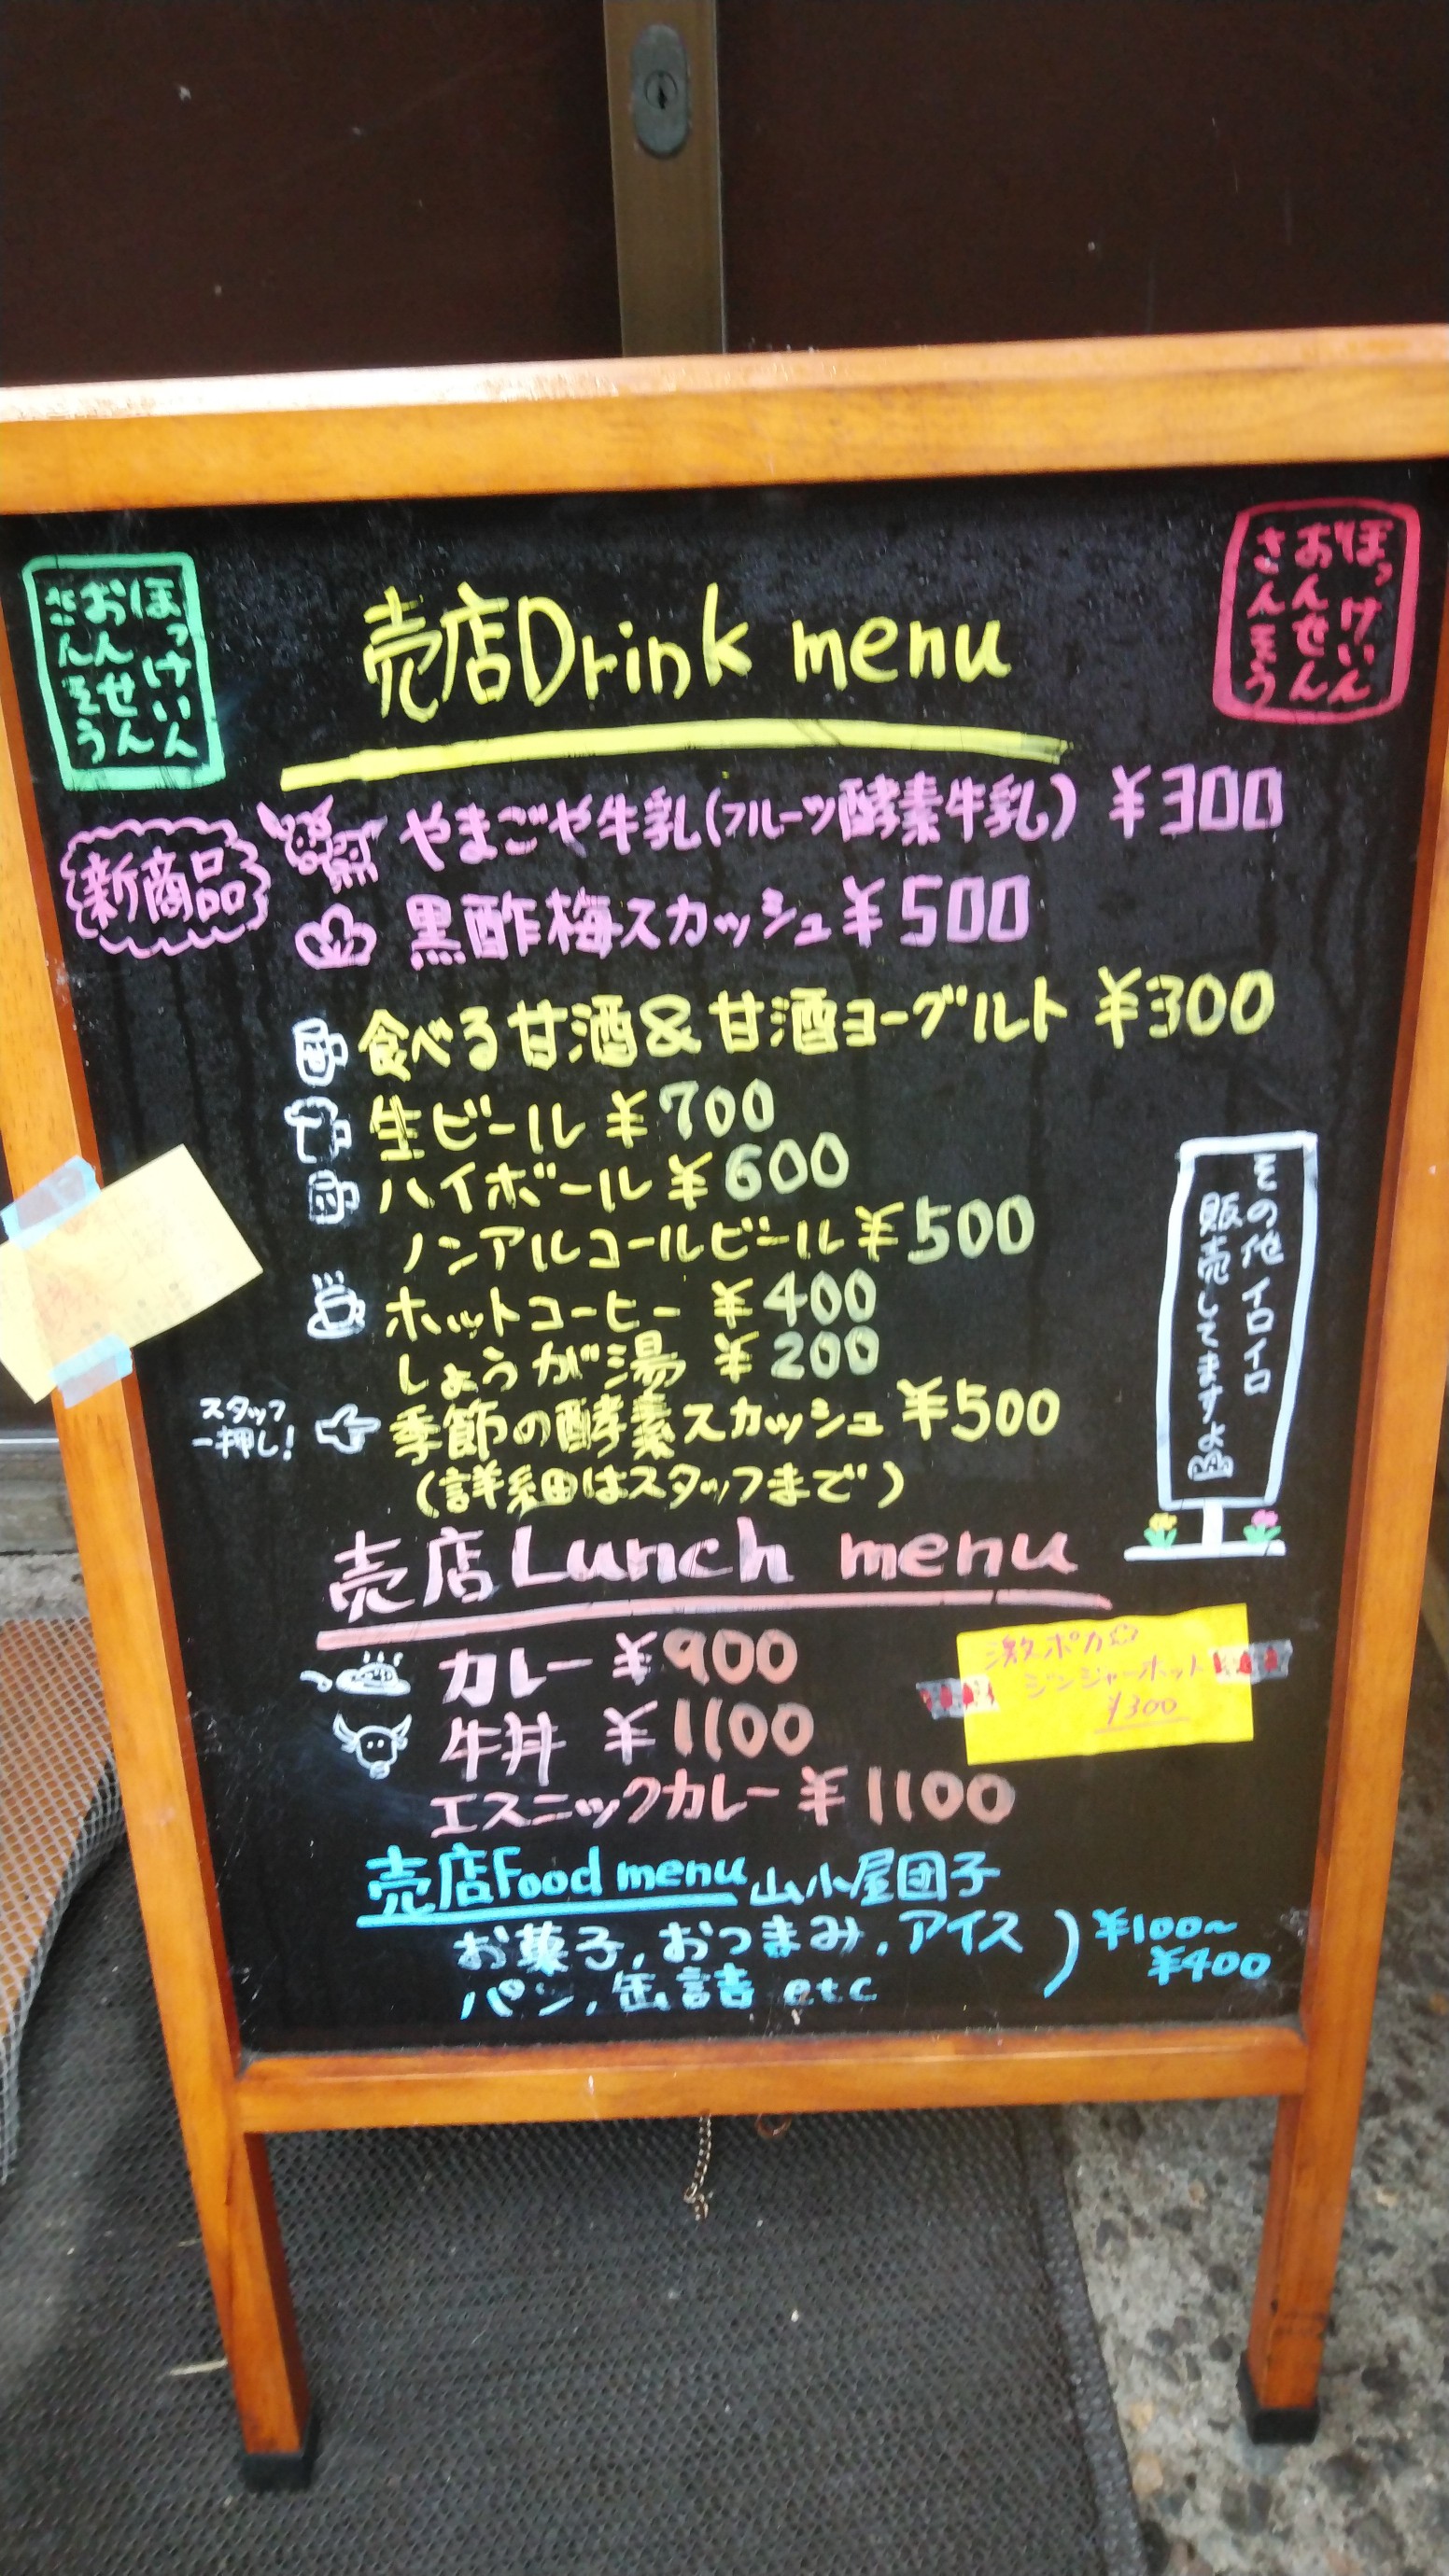 ほっけいん
おんせん
さんそう
売店Drink menu
ほっけいん
おんせん
さんそう
新商品
やまごや牛乳(フルーツ酵素牛乳) ¥300
黒酢梅スカッシュ¥500
食べる甘酒&甘酒ヨーグルト ¥300
生ビール ¥700
ハイボール ¥600
ノンアルコールビール ¥500
ホットコーヒー ¥400
しょうが湯 ¥200
スタッフ
一押し!
季節の酵素スカッシュ ¥500
(詳細はスタッフまで)
その他イロイロ
販売してますよ
売店Lunch menu
カレー ¥900
牛丼 ¥1100
エスニックカレー ¥1100
激ポカ
ジンジャーホット
¥300
売店Food menu 山小屋団子
お菓子,おつまみ,アイス
パン,缶詰 etc
) ¥100~
¥400